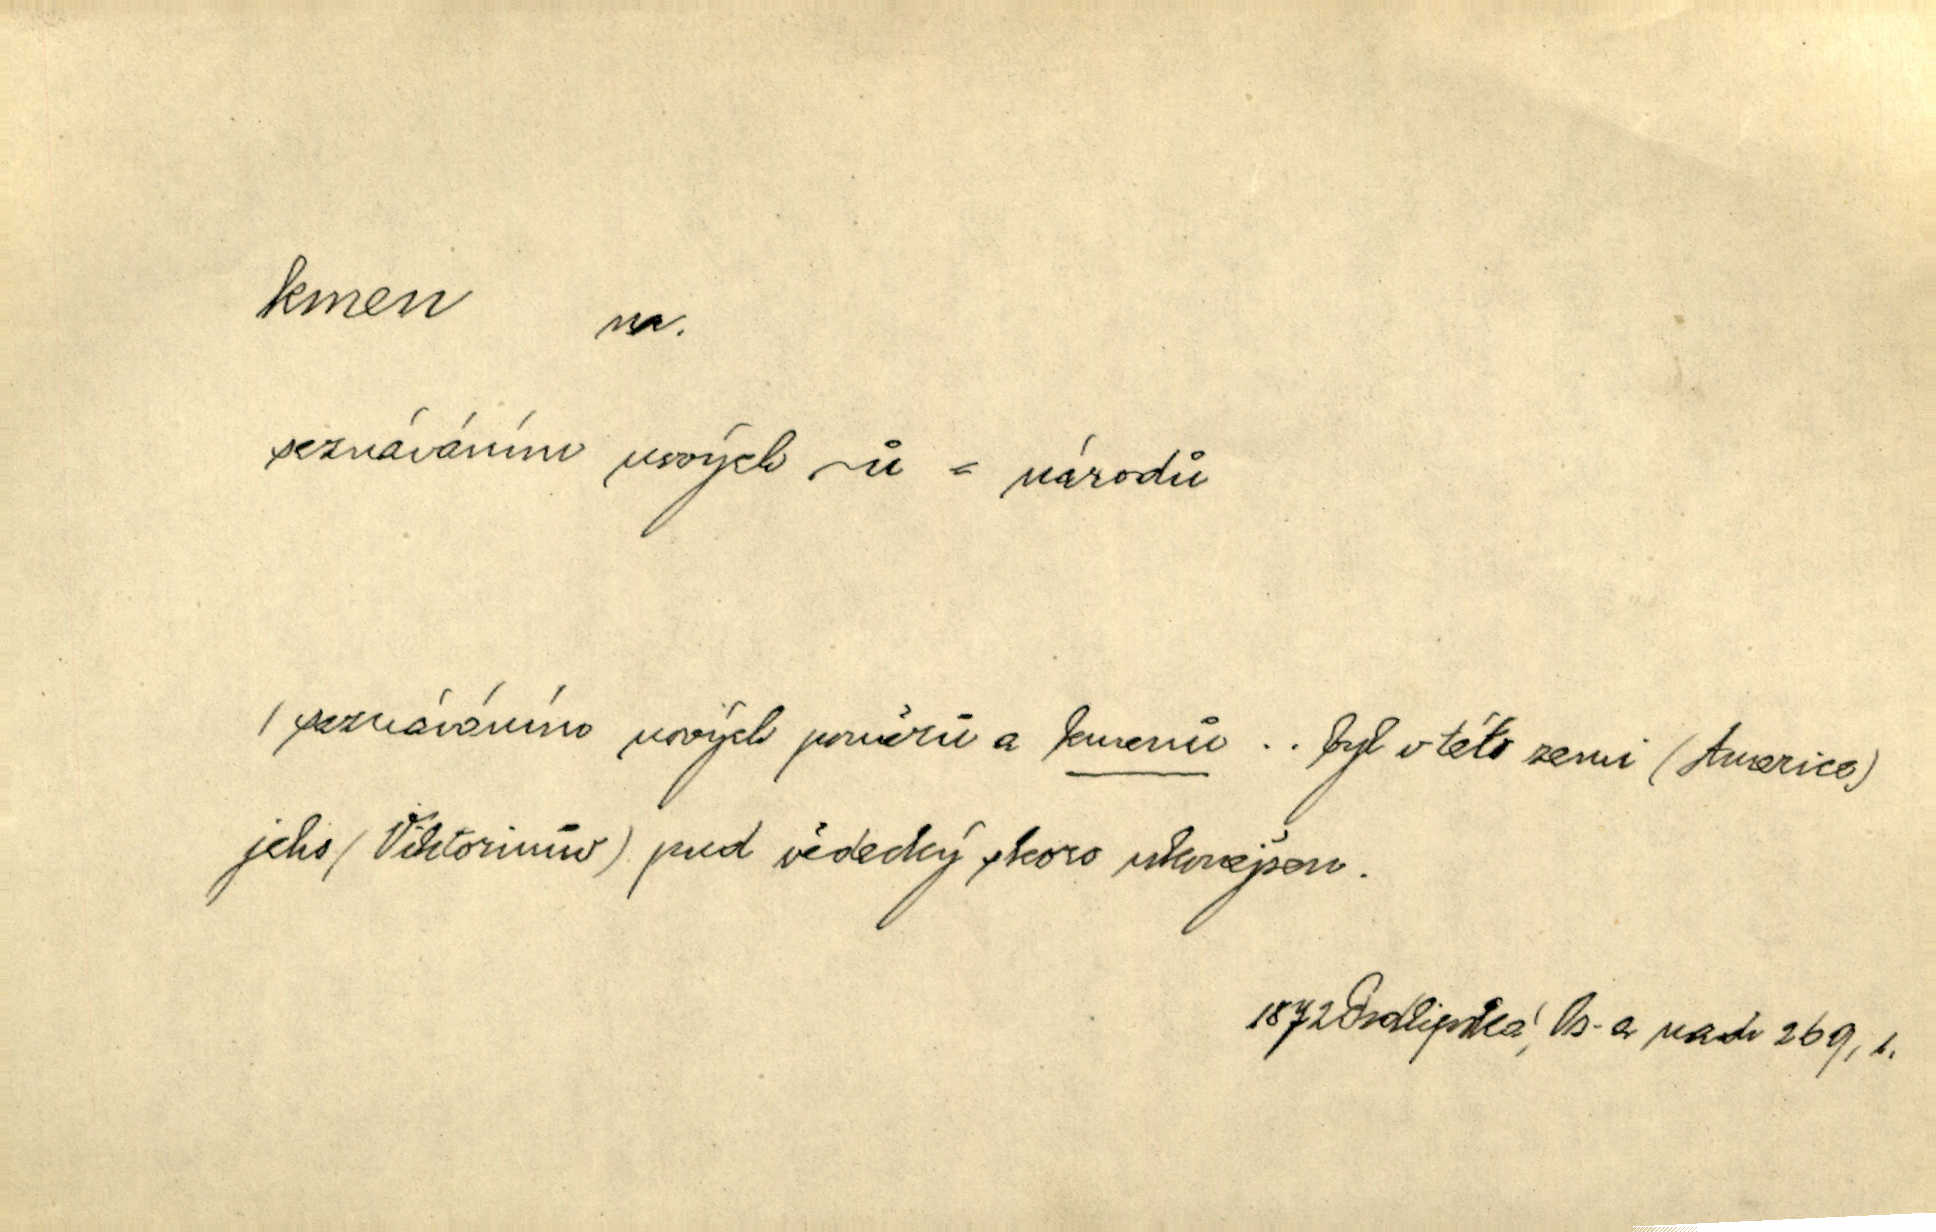 kmen m.
seznáváním nových ~ů = národů
/ seznáváním nových poměrů a kmenů .. byl v této zemi (Americe)
jeho (Viktorinův) pud vědecký skoro ukonejšen.
1872 Podlipská, Os. a nad. 269, 1.